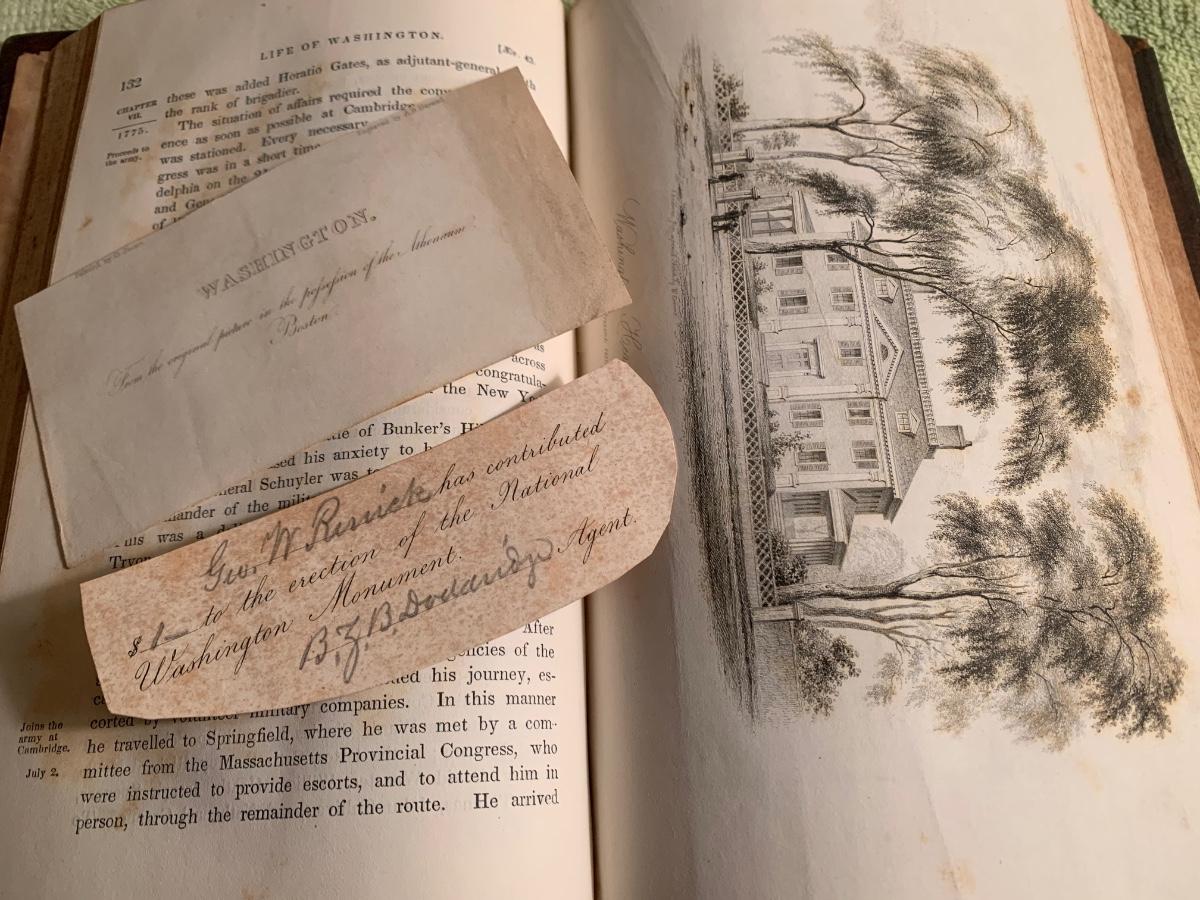 132
LIFE OF WASHINGTON.
CHAPTER
VII.
1775.
Proceeds to
the army.
these was added Horatio Gates, as adjutant-general
the rank of brigadier.
The situation of affairs required the
ence as soon as possible at Cambridge
was stationed. Every necessary
gress was in a short time
delphia on the
and Gen
of
WASHINGTON.
From the original picture in the poſseſsion of the Athenæum
Boston.
as
across
congratula-
the New Yo
of Bunker's Hi
his anxiety to
neral Schuyler was
ander of the mili
was a
Tryon
Geo. W Renick has contributed
$ 1 — to the erection of the National
Washington Monument.
B.F.B. Doddridge Agent.
After
encies of the
his journey, es-
corted by volunteer military companies. In this manner
Joins the
army at
Cambridge.
July 2.
he travelled to Springfield, where he was met by a com-
mittee from the Massachusetts Provincial Congress, who
were instructed to provide escorts, and to attend him in
person, through the remainder of the route. He arrived